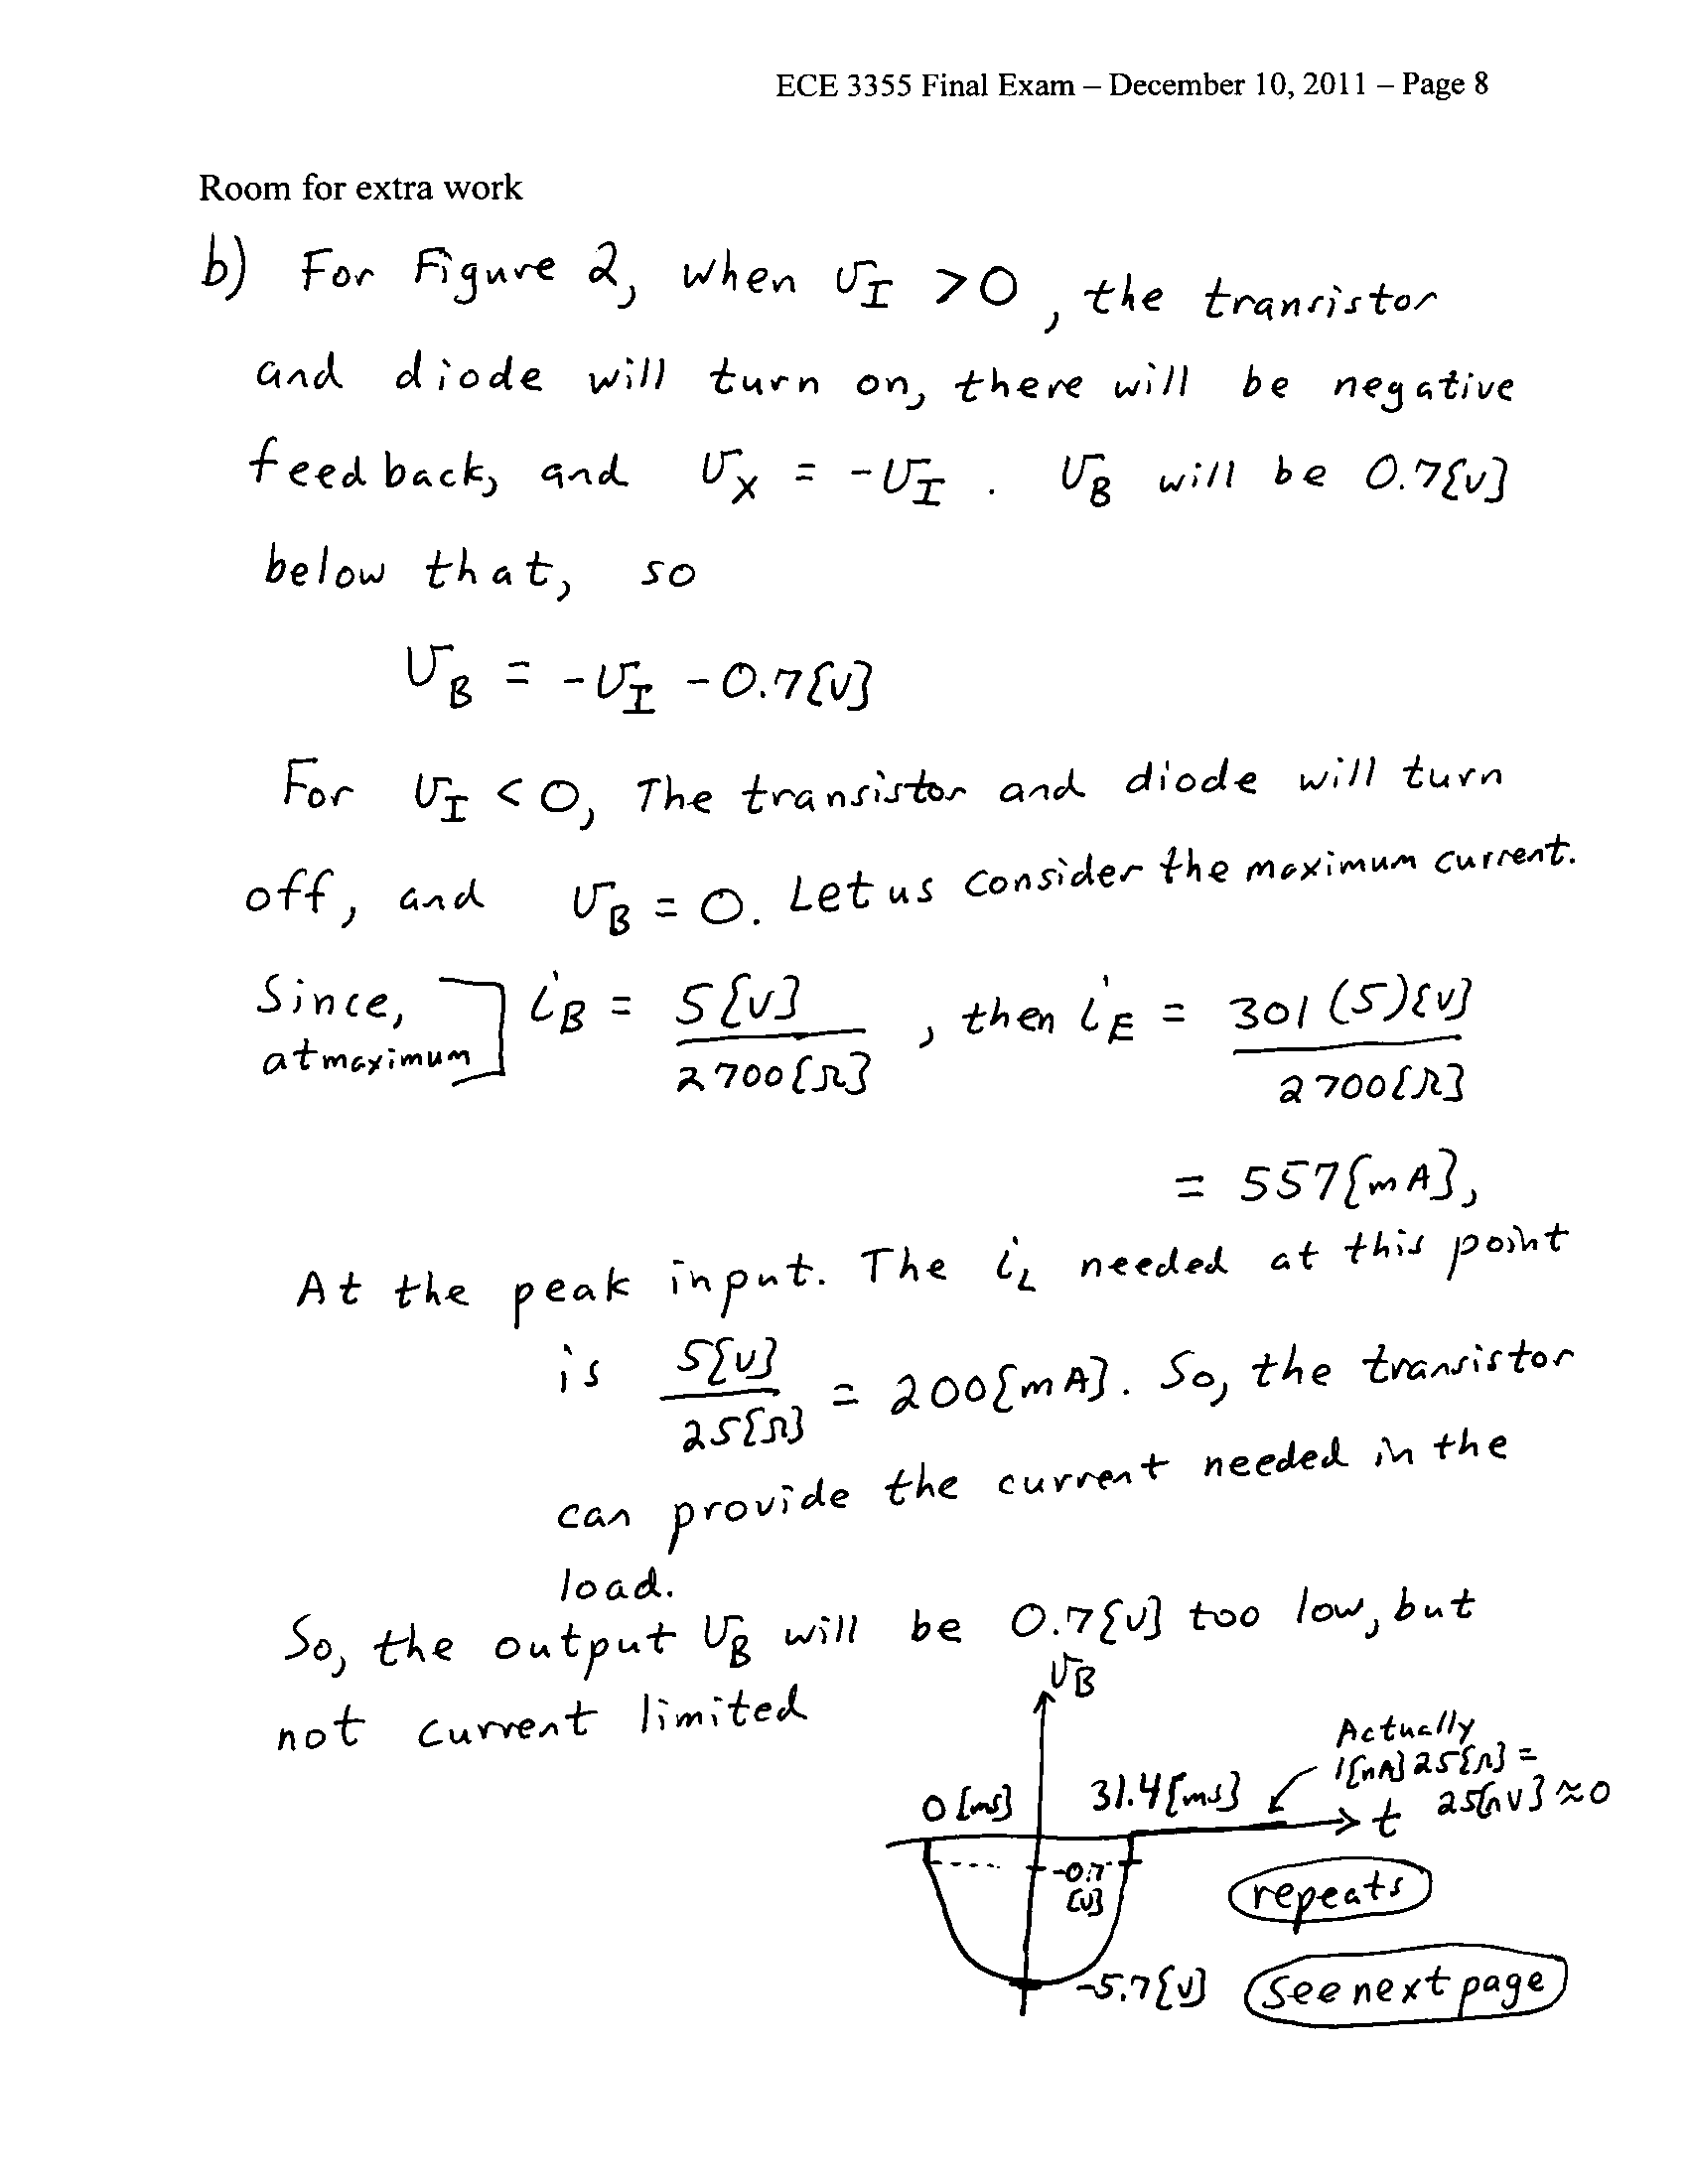 ECE 3355 Final Exam – December 10, 2011 – Page 8
Room for extra work
b) For Figure 2, when v_I >0, the transistor
and diode will turn on, there will be negative
feedback, and v_X = -v_I. v_B will be 0.7[V]
below that, so
v_B = -v_I - 0.7[V]
For v_I < 0, The transistor and diode will turn
off, and v_B = 0. Let us consider the maximum current.
Since, at maximum] i_B = 5[V] / 2700[Ω], then i_E = 301(5)[V] / 2700[Ω]
= 557[mA],
At the peak input. The i_L needed at this point
is 5[V] / 25[Ω] = 200[mA]. So, the transistor
can provide the current needed in the
load.
So, the output v_B will be 0.7[V] too low, but
not current limited
v_B
Actually
1[nA]25[Ω] =
25[nV] ≈0
0[ms]
31.4[ms]
t
-0.7
[V]
repeats
-5.7[V]
See next page